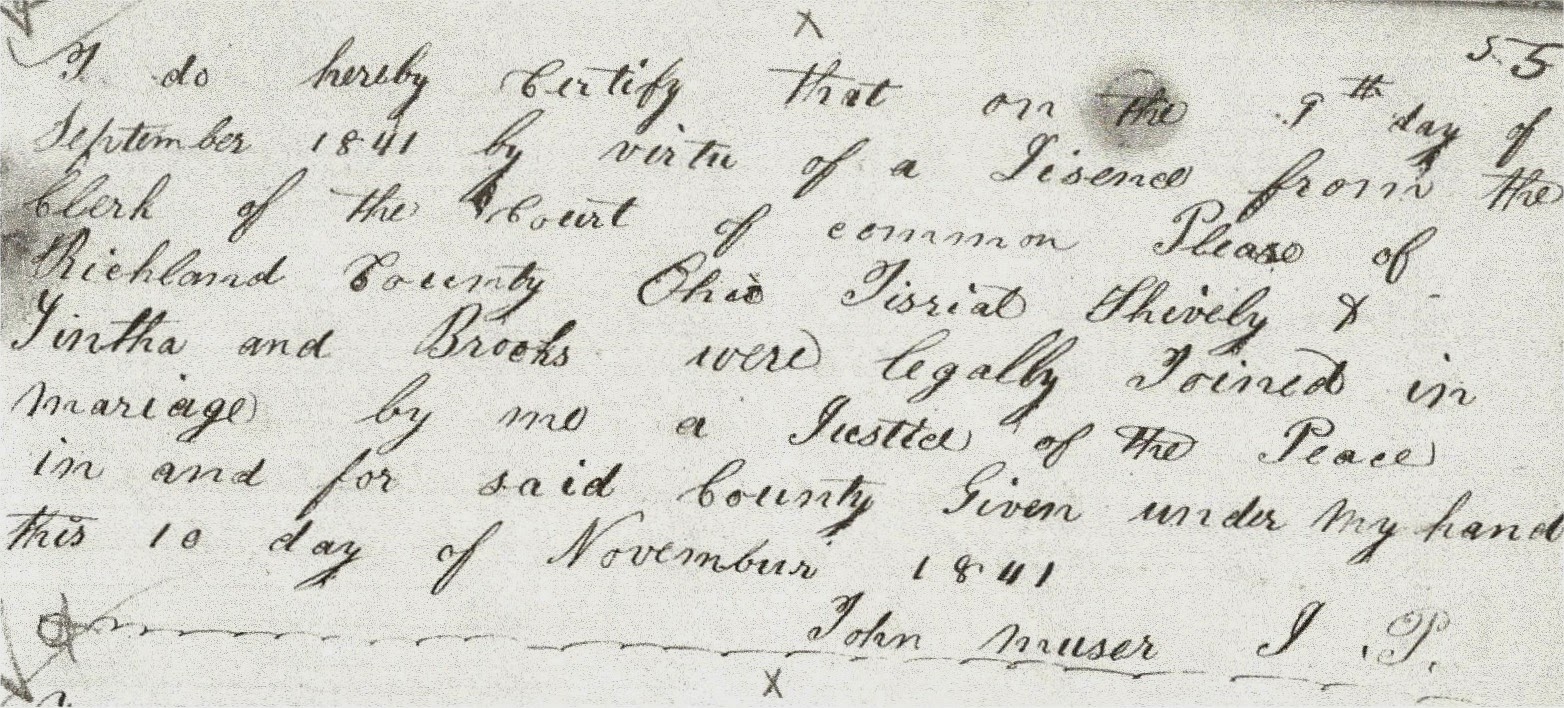 55
I do hereby Certify that on the 9th day of
September 1841 by virtu of a Lisence from the
Clerk of the Court of common Please of
Richland County Ohio Tisrial Shively &
Sintha and Brooks were legally Joined in
mariage by me a Justice of the Peace
in and for said County Given under my hand
this 10 day of Novembur 1841
John Muser J. P.